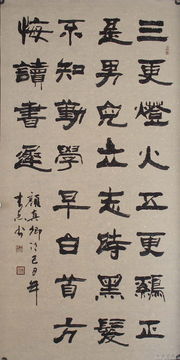 三更燈火五更鷄正
是男兒立志時黑髮
不知勤學早白首方
悔讀書遲
顏真卿